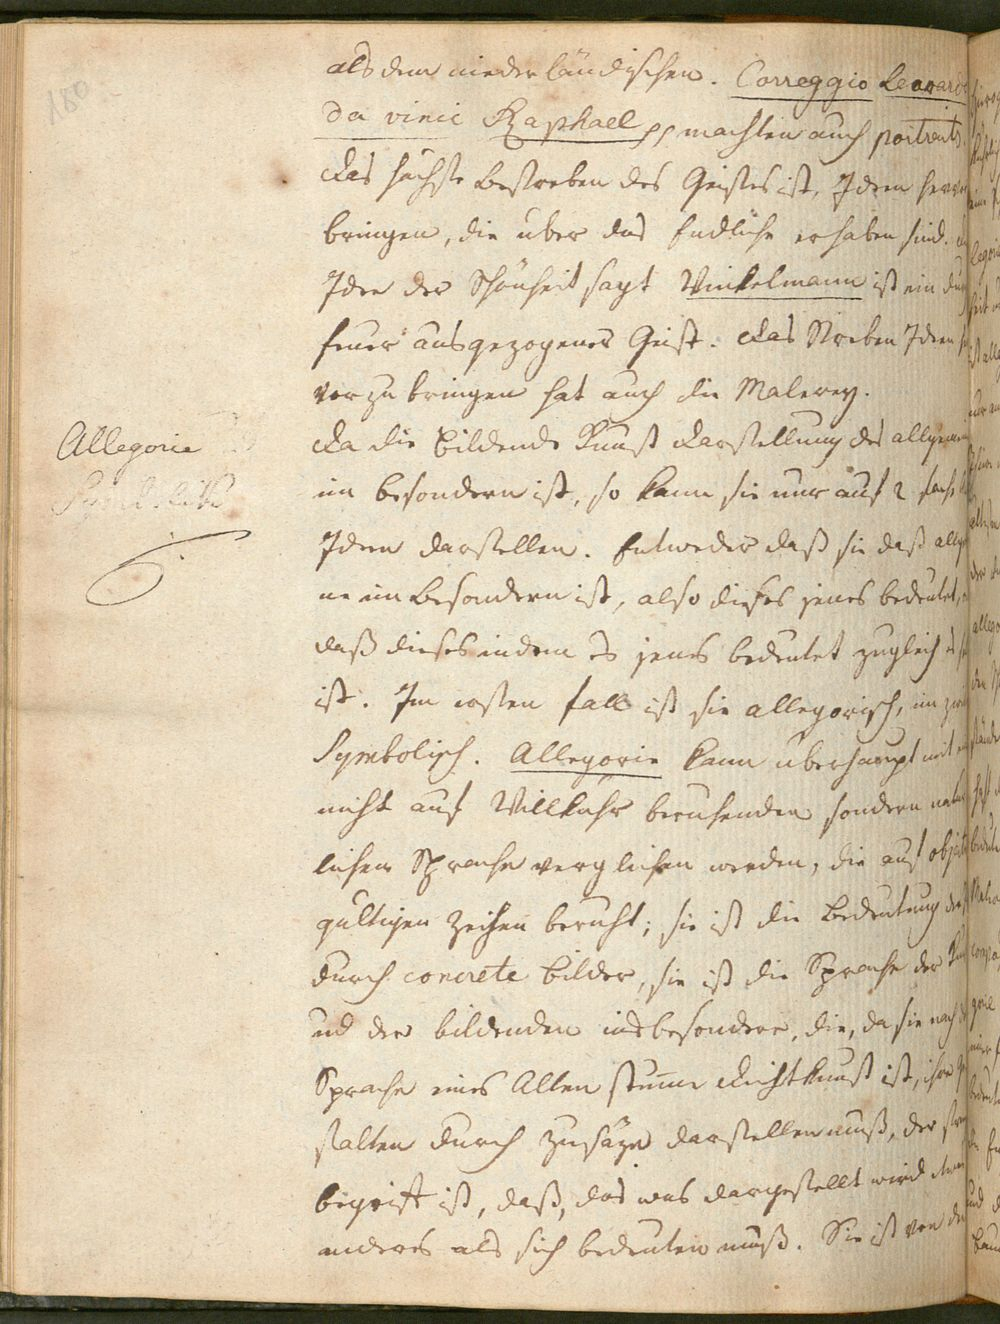 180
als dem niederländischen. Correggio Leonardo
da vinci Raphael pp machten auch portraits.
das höchste Bestreben des Geistes ist, Ideen hervor
bringen, die uber das Endliche erhaben sind.
Idee der Schönheit sagt Winkelmann ist ein durch
feuer ausgezogener Geist. das Streben Ideen
vorzubringen hat auch die Malerey.
Allegorie
Symbolik
da die Bildende Kunst darstellung des allgemeinen
im besondern ist, so kann sie nur auf 2 fache
Ideen darstellen. Entweder daß sie daß allge
ne im besondern ist, also dieses jenes bedeutet,
daß dieses indem es jenes bedeutet zugleich es
ist. Im ersten fall ist sie allegorisch, im
Symbolisch. Allegorie kann uberhaupt mit
nicht auf Willkühr beruhenden sondern natur
lichen Sprache verglichen werden, die auf objectiv
gultigen Zeichen beruht; sie ist die Bedeutung der
durch concrete Bilder, sie ist die Sprache der Kunst
ud der bildenden insbesondere, die, da sie nach
Sprache eines Alten stum̄e dichtkunst ist, ihre Ge
stalten durch Zusäze darstellen muß, der
begrift ist, daß, das was dargestellt wird etwas
anders als sich bedeuten muß. Sie ist von der